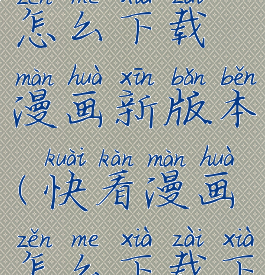 zěn me xià zài
怎么下载
màn huà xīn bǎn běn
漫画新版本
kuài kàn màn huà
(快看漫画
zěn me xià zài xià
怎么下载下